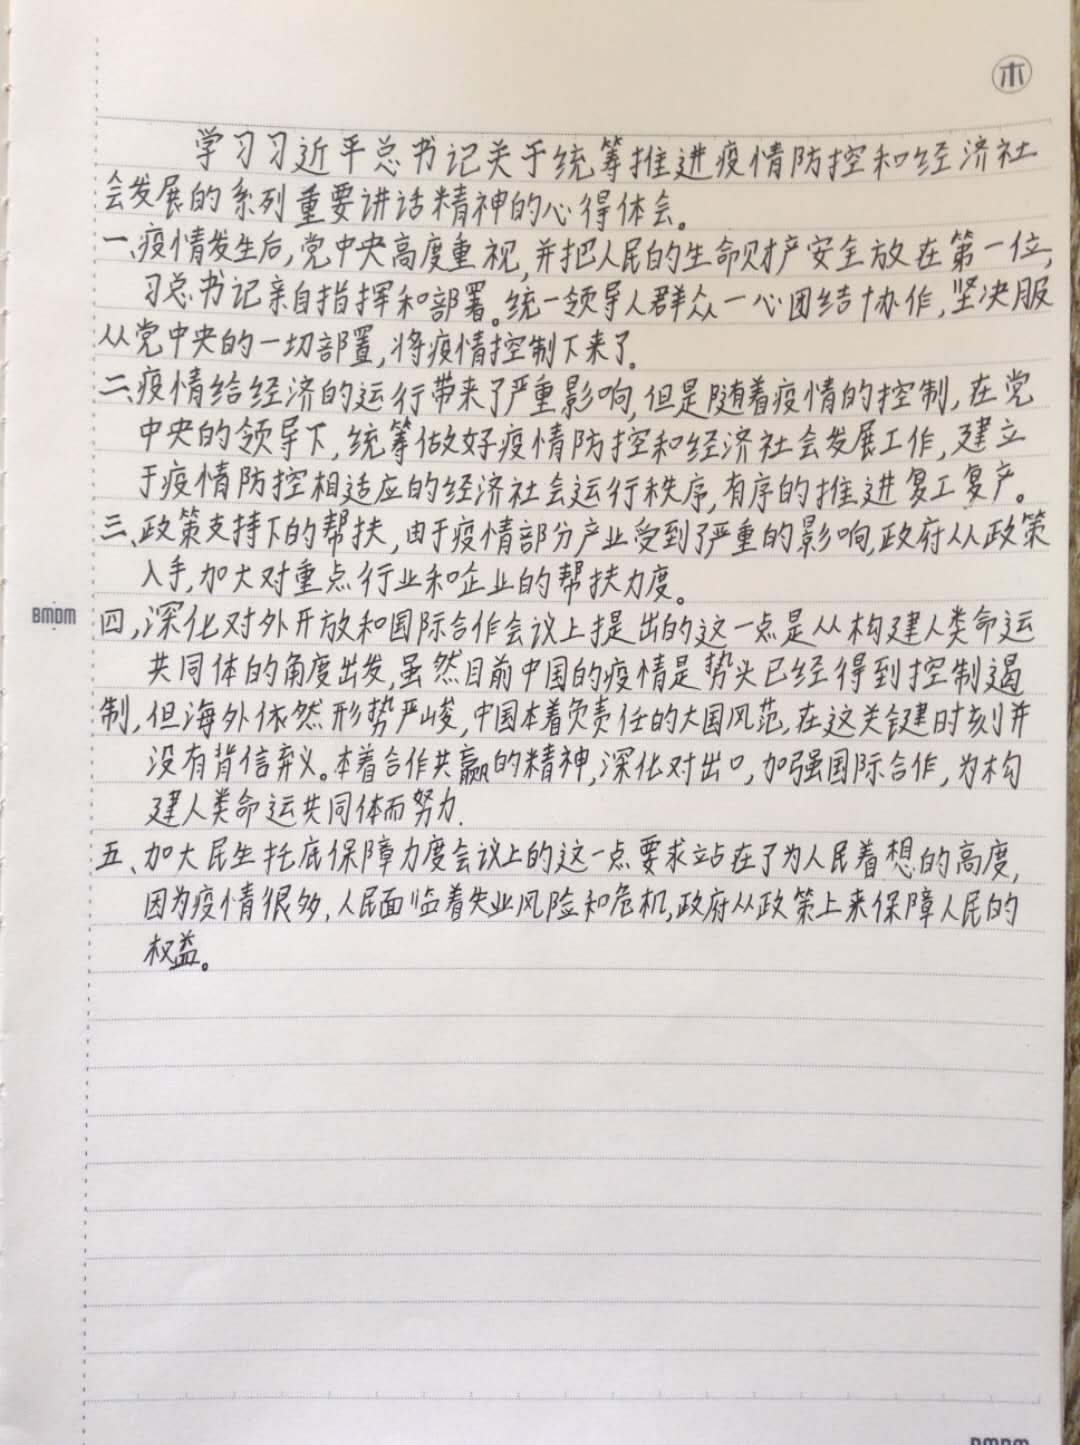 木
学习习近平总书记关于统筹推进疫情防控和经济社
会发展的系列重要讲话精神的心得体会。
一、疫情发生后,党中央高度重视,并把人民的生命财产安全放在第一位,
习总书记亲自指挥和部署。统一领导人群众一心团结协作,坚决服
从党中央的一切部署,将疫情控制下来了.
二、疫情给经济的运行带来了严重影响,但是随着疫情的控制,在党
中央的领导下,统筹做好疫情防控和经济社会发展工作,建立
于疫情防控相适应的经济社会运行秩序,有序的推进复工复产。
三、政策支持下的帮扶,由于疫情部分产业受到了严重的影响,政府从政策
入手,加大对重点行业和企业的帮扶力度。
BMDM
四,深化对外开放和国际合作会议上提出的这一点是从构建人类命运
共同体的角度出发,虽然目前中国的疫情是势头已经得到控制遏
制,但海外依然形势严峻,中国本着负责任的大国风范,在这关键时刻并
没有背信弃义。本着合作共赢的精神,深化对出口,加强国际合作,为构
建人类命运共同体而努力.
五、加大民生托底保障力度会议上的这一点要求站在了为人民着想的高度,
因为疫情很多,人民面临着失业风险和危机,政府从政策上来保障人民的
权益。
BMDM